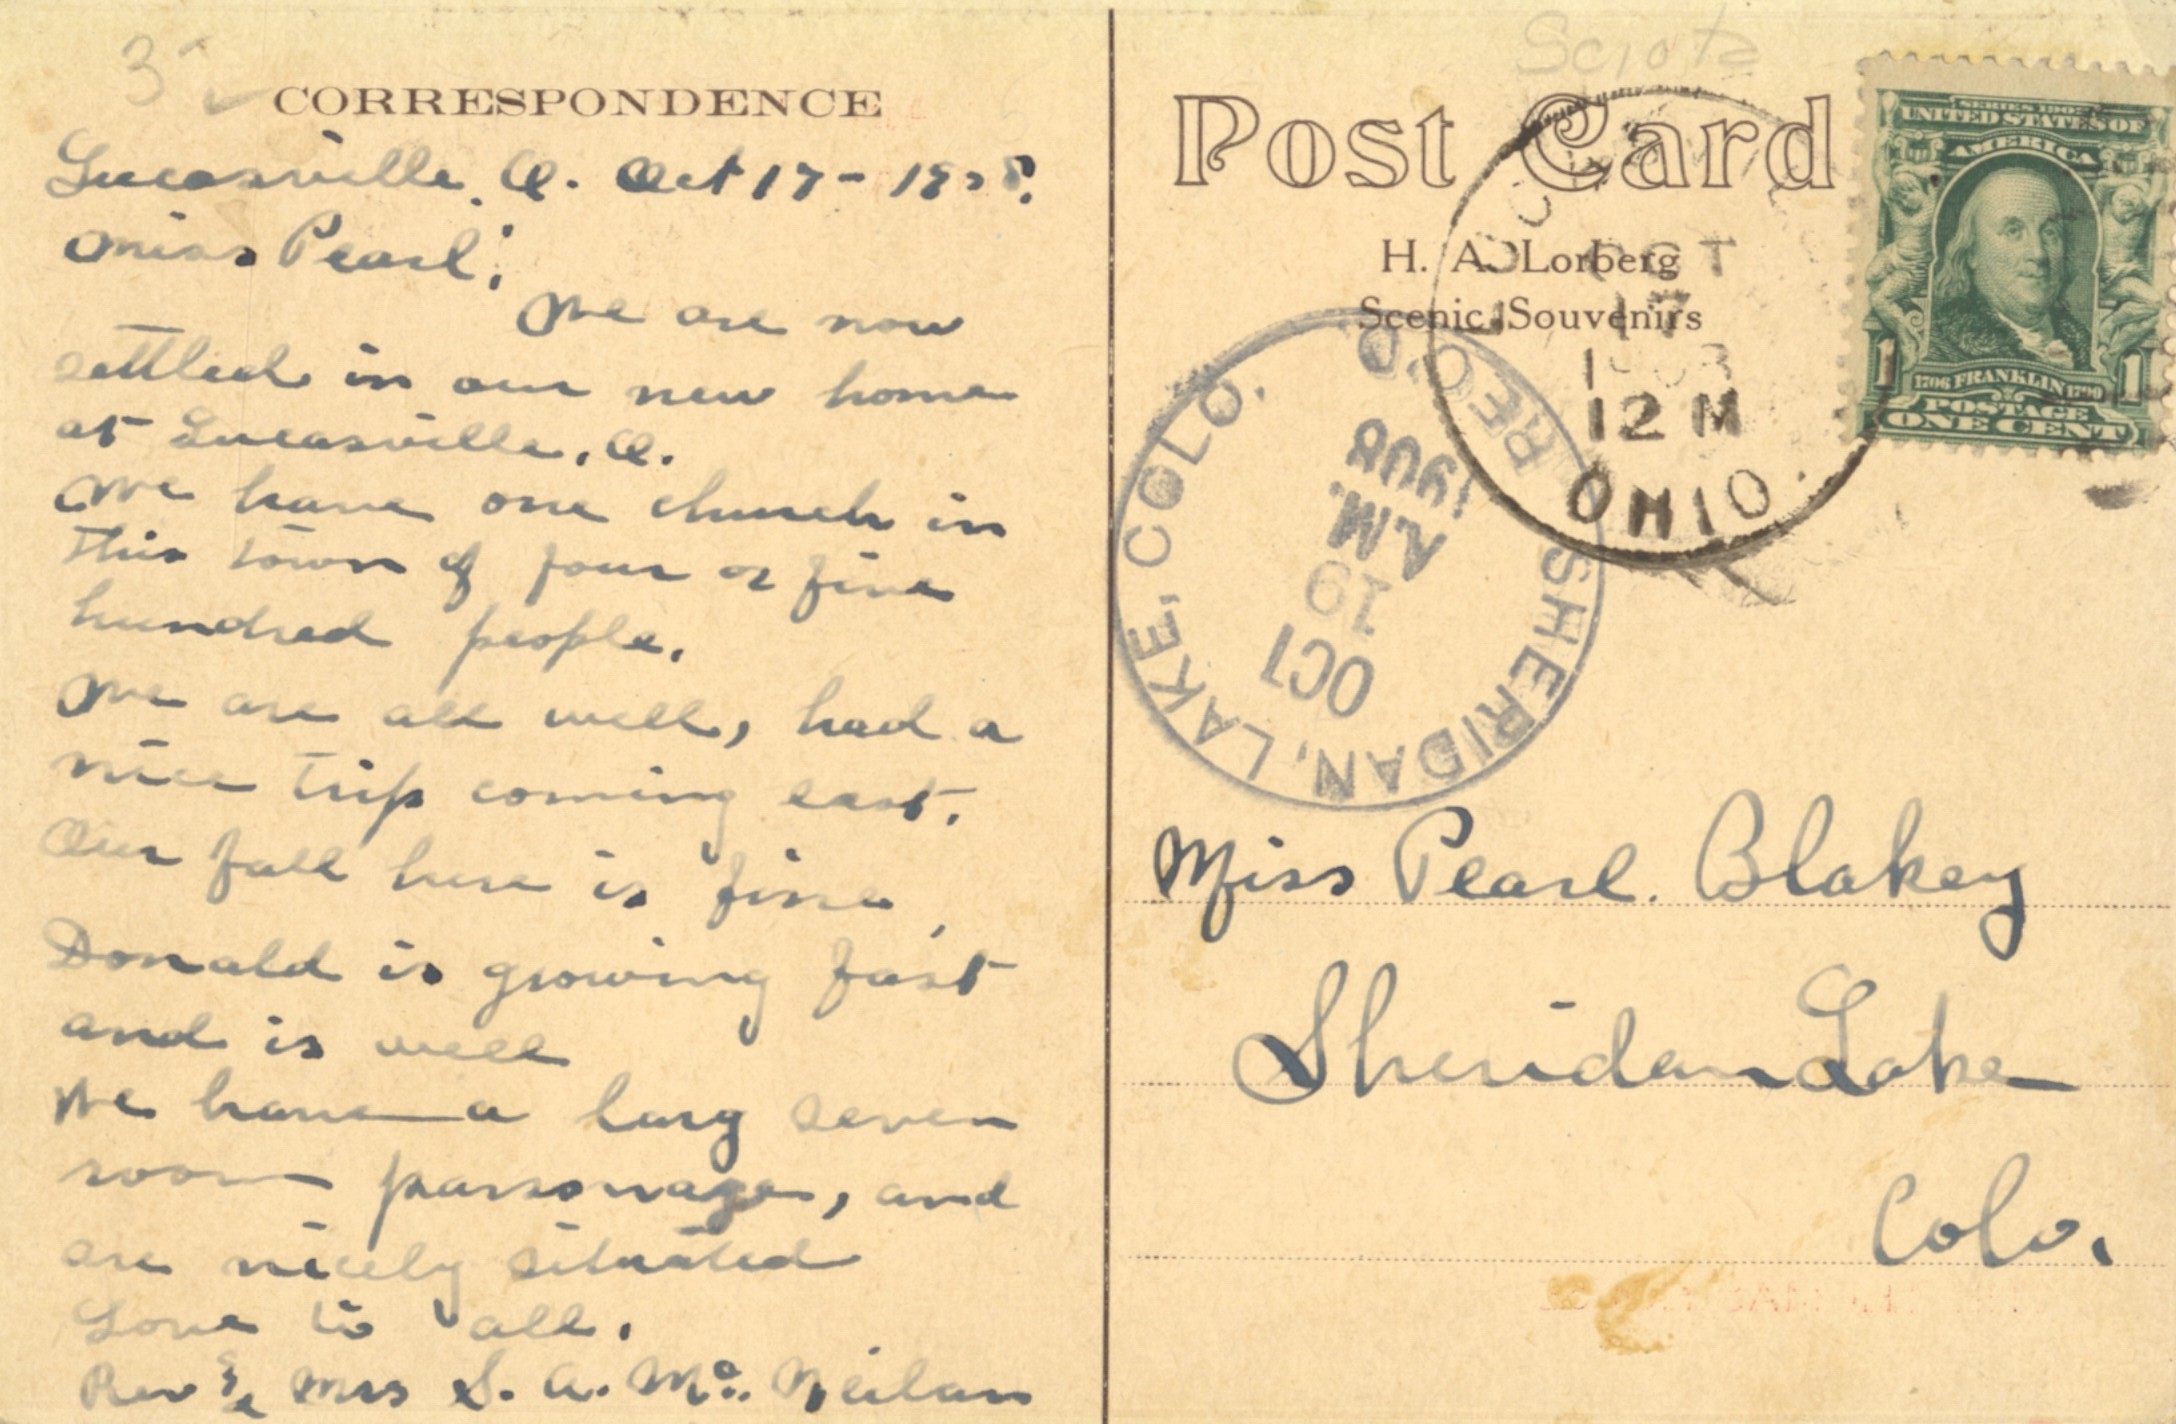 3
CORRESPONDENCE
Lucasville, O. Oct 17 - 1908.
Miss Pearl;
We are now
settled in our new home
at Lucasville, O.
We have one church in
this town of four or five
hundred people.
We are all well, had a
nice trip coming east.
Our fall here is fine,
Donald is growing fast
and is well
We have a larg seven
room parsonage, and
are nicely situated
Love to all.
Rev & Mrs S. A. Mc. Neilan
Sciota
Post Card
H. A. Lorberg
Scenic Souvenirs
OCT
17
1908
12 M
OHIO.
SHERIDAN, LAKE, COLO.
REC'D.
OCT
19
A.M.
1908
SERIES 1902
UNITED STATES OF
AMERICA
1706 FRANKLIN 1790
1 POSTAGE 1
ONE CENT
Miss Pearl. Blakey
Sheridan Lake
Colo.